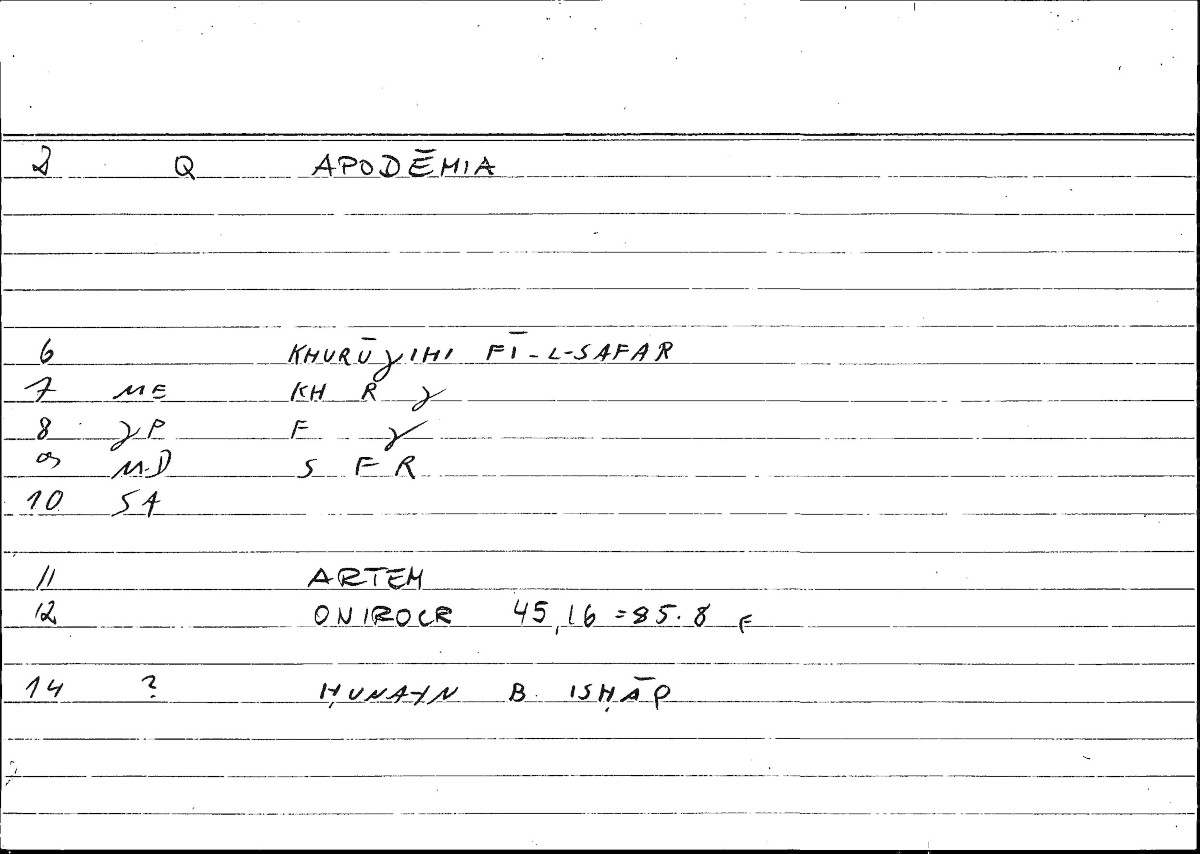 2 Q APODĒMIA
6 KHURŪJIHI FĪ-L-SAFAR
7 ME KH R J
8 JP F J
9 MD S F R
10 SA
11 ARTEM
12 ONIROCR 45,16=85.8 F
14 ? ḤUNAYN B. ISḤĀQ